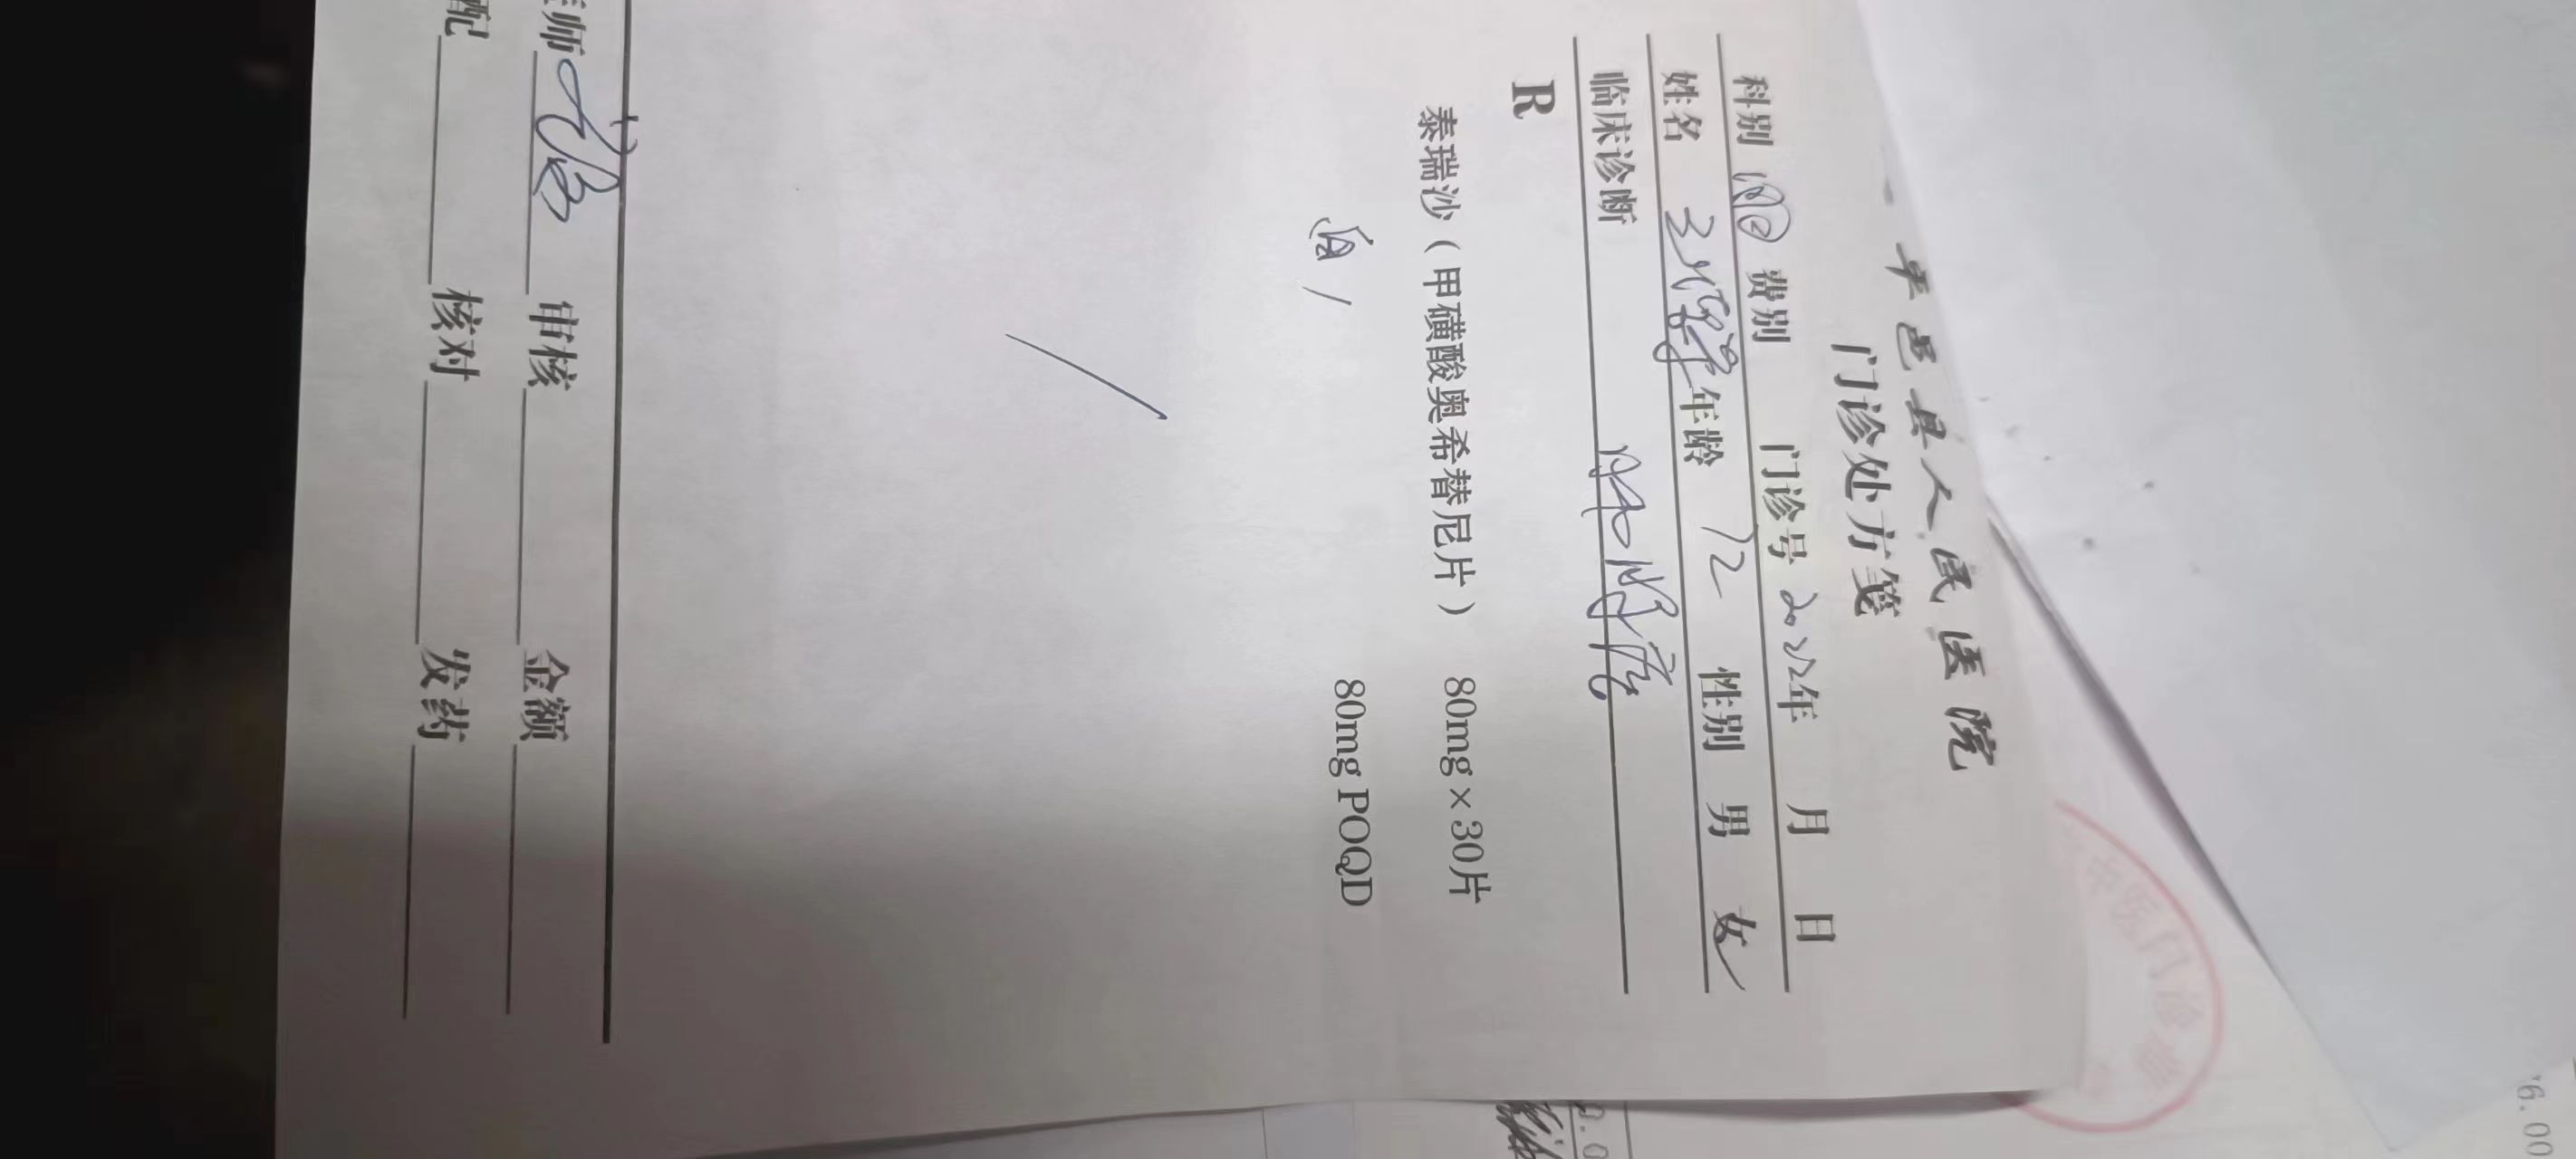 平邑县人民医院
门诊处方笺
科别 费别 门诊号 2022年 月 日
姓名 年龄 72 性别 男 女
临床诊断
R
泰瑞沙（甲磺酸奥希替尼片） 80mg×30片
80mg POQD
师 审核 金额
配 核对 发药
6.00